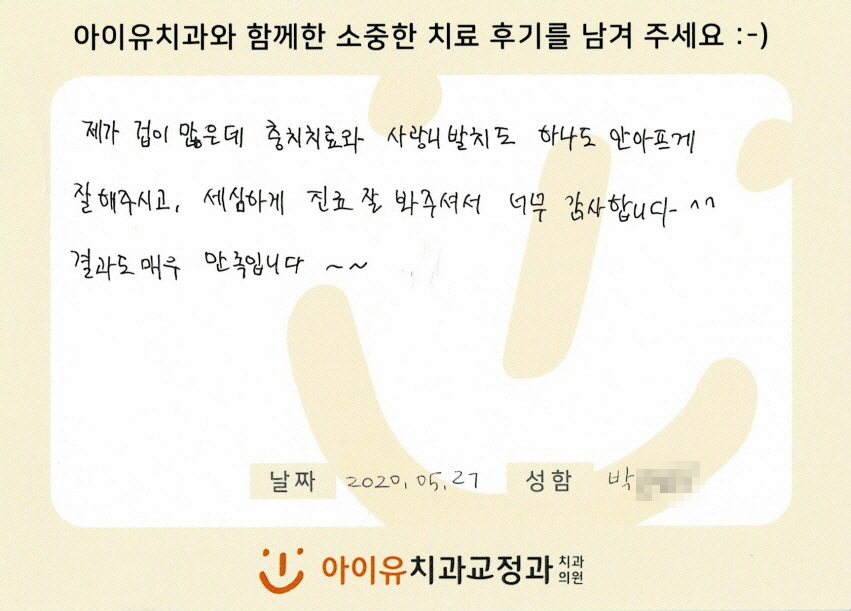 아이유치과와 함께한 소중한 치료 후기를 남겨 주세요 :-)
제가 겁이 많은데 충치치료와 사랑니 발치도 하나도 안아프게
잘해주시고, 세심하게 진료 잘 봐주셔서 너무 감사합니다- ^^
결과도 매우 만족입니다 ~~
날짜 2020.05.27 성함 박
아이유치과교정과 치과의원